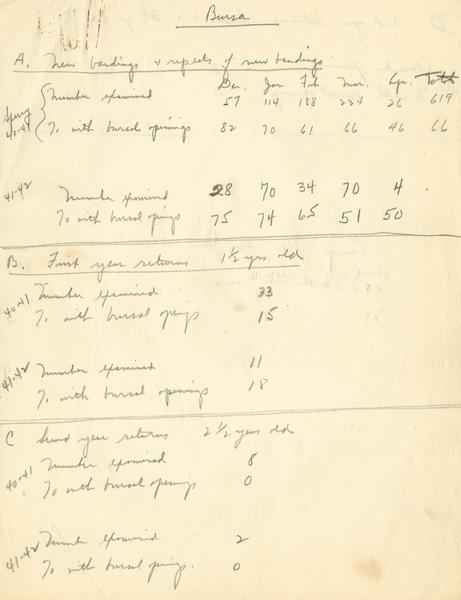 Bursa
A. New bandings & repeats of new bandings
Dec. Jan Feb Mar. Apr. Total
40-41 Number examined 57 114 188 234 26 619
% with bursal openings 82 70 61 66 46 66
41-42 Number examined 28 70 34 70 4
% with bursal opnings 75 74 65 51 50
B. First year returns 1 1/2 yrs old
40-41 Number examined 33
% with bursal opnings 15
41-42 Number examined 11
% with bursal openings 18
C Second year returns 2 1/2 years old
40-41 Number examined 8
% with bursal openings 0
41-42 Number examined 2
% with bursal opnings. 0